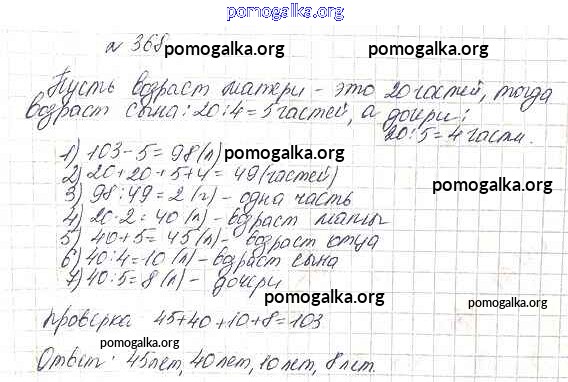 pomogalka.org
№ 368 pomogalka.org
Пусть возраст матери - это 20 частей, тогда
возраст сына: 20:4=5 частей, а дочери:
20:5=4 части.
1) 103-5=98(л) pomogalka.org
2) 20+20+5+4=49(частей)
3) 98:49=2(г)-одна часть pomogalka.org
4) 20·2=40(л)-возраст мамы
5) 40+5=45(л)-возраст отца
6) 40:4=10(л)-возраст сына
7) 40:5=8(л)- дочери
pomogalka.org pomogalka.org
проверка 45+40+10+8=103
pomogalka.org
Ответ: 45 лет, 40 лет, 10 лет, 8 лет.
pomogalka.org